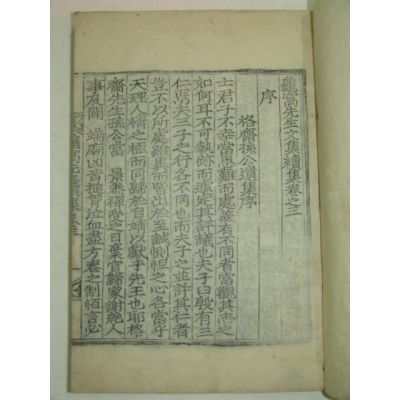 龜窩先生文集續集卷之三
序
格齋孫公遺集序
士君子不幸當患難而處義有不同者當觀其志之
如何耳不可執跡而遽定其評議也夫子曰殷有三
仁焉夫三子之行各不同也而夫子之並許其仁者
豈不以所處雖異而皆出於至誠惻怛之心各當乎
天理人情之極而同歸於自靖以獻于先王也耶格
齋先生孫公當 景泰禪受之日棄官歸家謝絶人
事及聞 端廟凶音搥胷泣血盡方喪之制恒言必
先生續集卷三